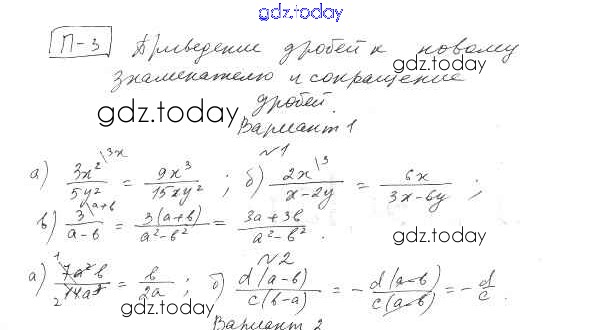 gdz.today
П-3 Приведение дробей к новому
gdz.today
знаменателю и сокращение
дробей.
gdz.today
Вариант 1
№1
а) 3x²/5y² \3x = 9x³/15xy² ; б) 2x/x-2y \3 = 6x/3x-6y ;
в) 3/a-b \a+b = 3(a+b)/a²-b² = 3a+3b/a²-b² .
gdz.today
№2
а) 7a²b/14a³ = b/2a ; б) d(a-b)/c(b-a) = - d(a-b)/c(a-b) = - d/c .
gdz.today
Вариант 2